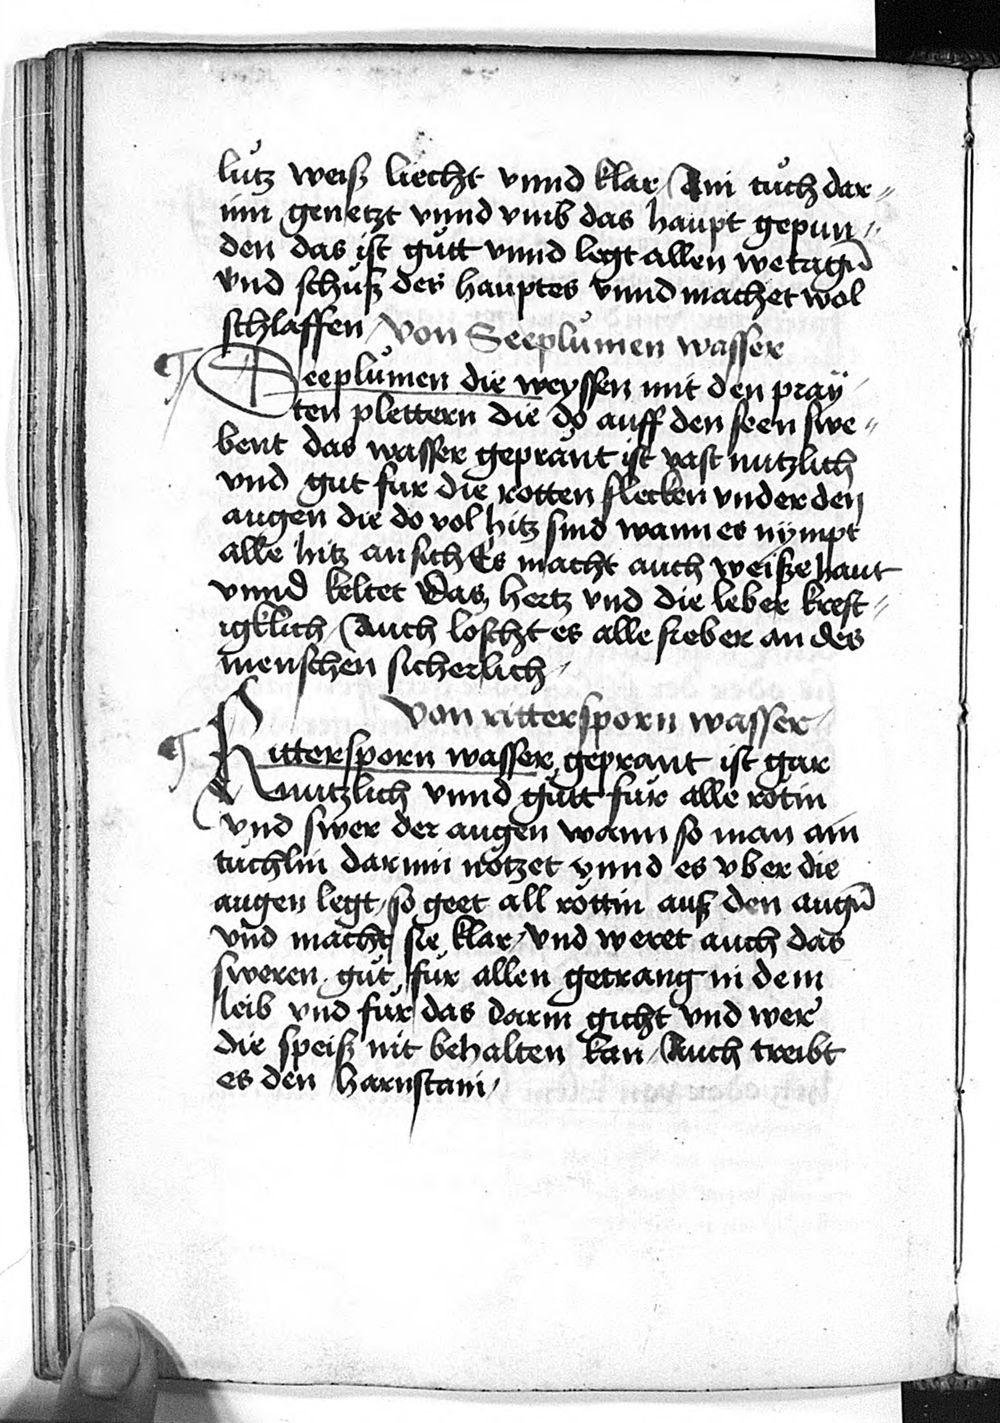 lutz weiß liecht vnnd klar / Ain tuch dar⸗
inn genetzt vnnd vmb das haupt gepun⸗
den das ist gůtt vnnd legt allen wetagn̄
vnd schuß des hauptes vnnd machet wol
schlaffen / Von Seeplůmen wasser
Seeplůmen die weyssen mit den pray
ten plettern die do auff den seen swe⸗
bent das wasser geprant ist vast nutzlich
vnd gut fur die rotten flecken vnder den
augen die do vol hitz sind wann es nympt
alle hitz an sich Es macht auch weiße haut
vnnd keltet Das hertz vnd die leber kreft⸗
igklich / Auch loscht es alle fieber an des
menschen sicherlich /
Von rittersporn wasser /
Rittersporn wasser geprant ist gar
nutzlich vnnd gůtt fůr alle rotin
vnd swer der augen wann so man ain
tůchlin darinn nötzet vnnd es vber die
augen legt / so geet all röttin auß den augn̄
vnd macht sie klar / vnd weret auch das
sweren / gůt fůr allen getrang in dem
leib vnd fůr das darm gicht vnd wer
die speiß nit behalten kan / Auch treibt
es den harnstain /